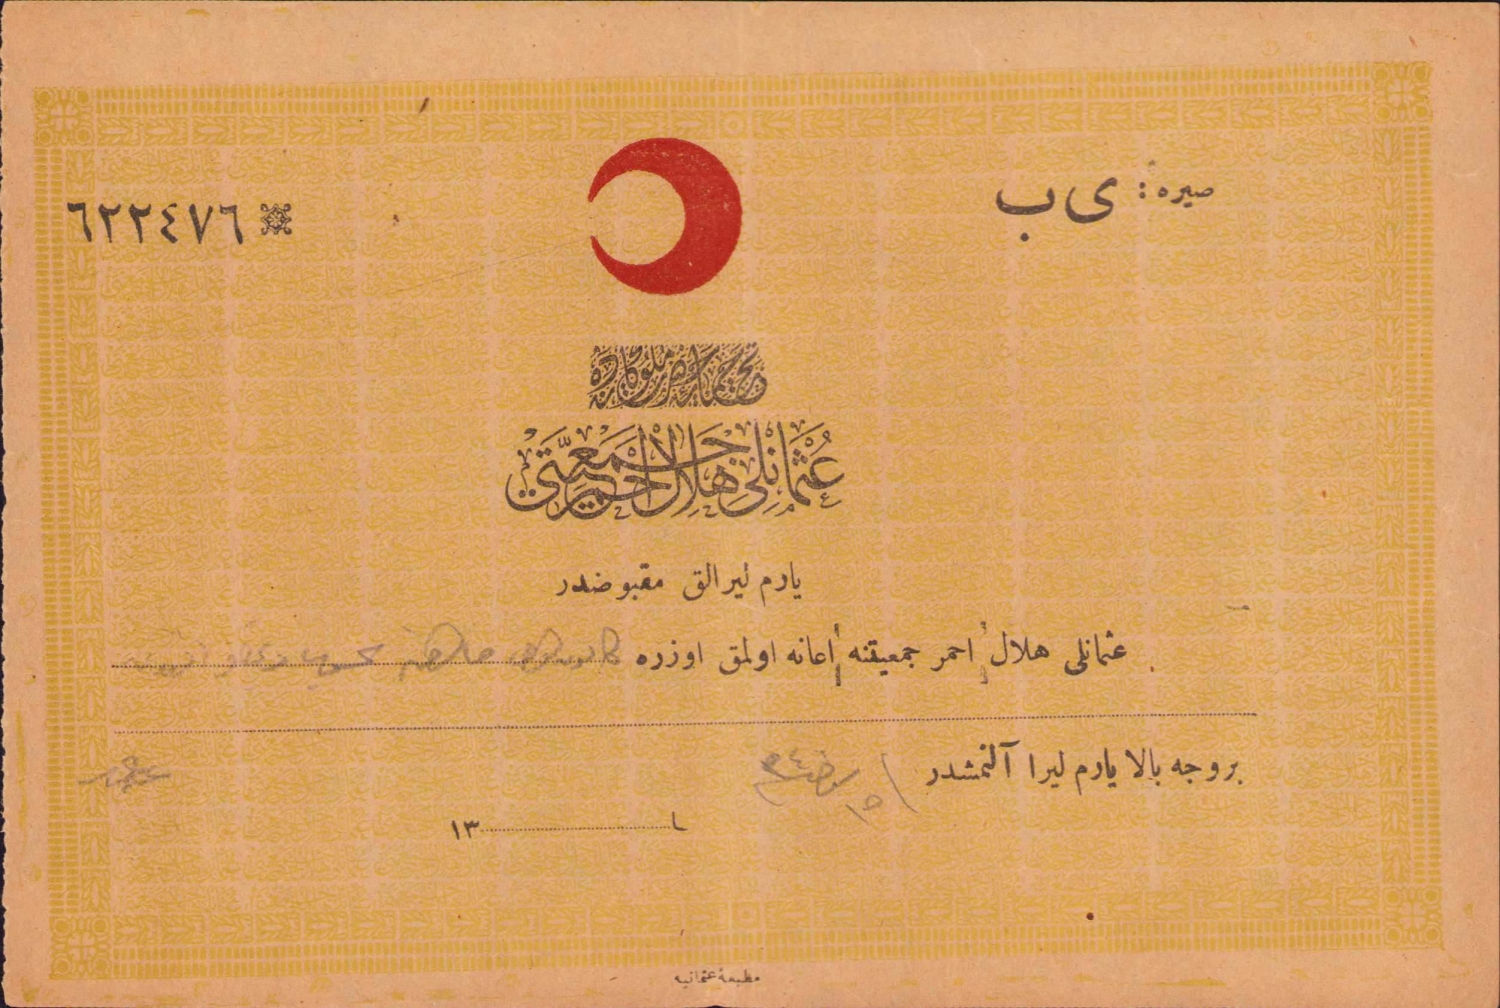 صيره : ى ب
٦٢٢٤٧٦
تحت حمايۀ حضرت ملوكانه‌ده
عُثمانلى هِلال احمر جمعيّتى
يارم ليرالق مقبوضدر
عثمانلى هلال احمر جمعيتنه اعانه اولمق اوزره
بروجه بالا يارم ليرا آلنمشدر
١٣
مطبعۀ عثمانيه